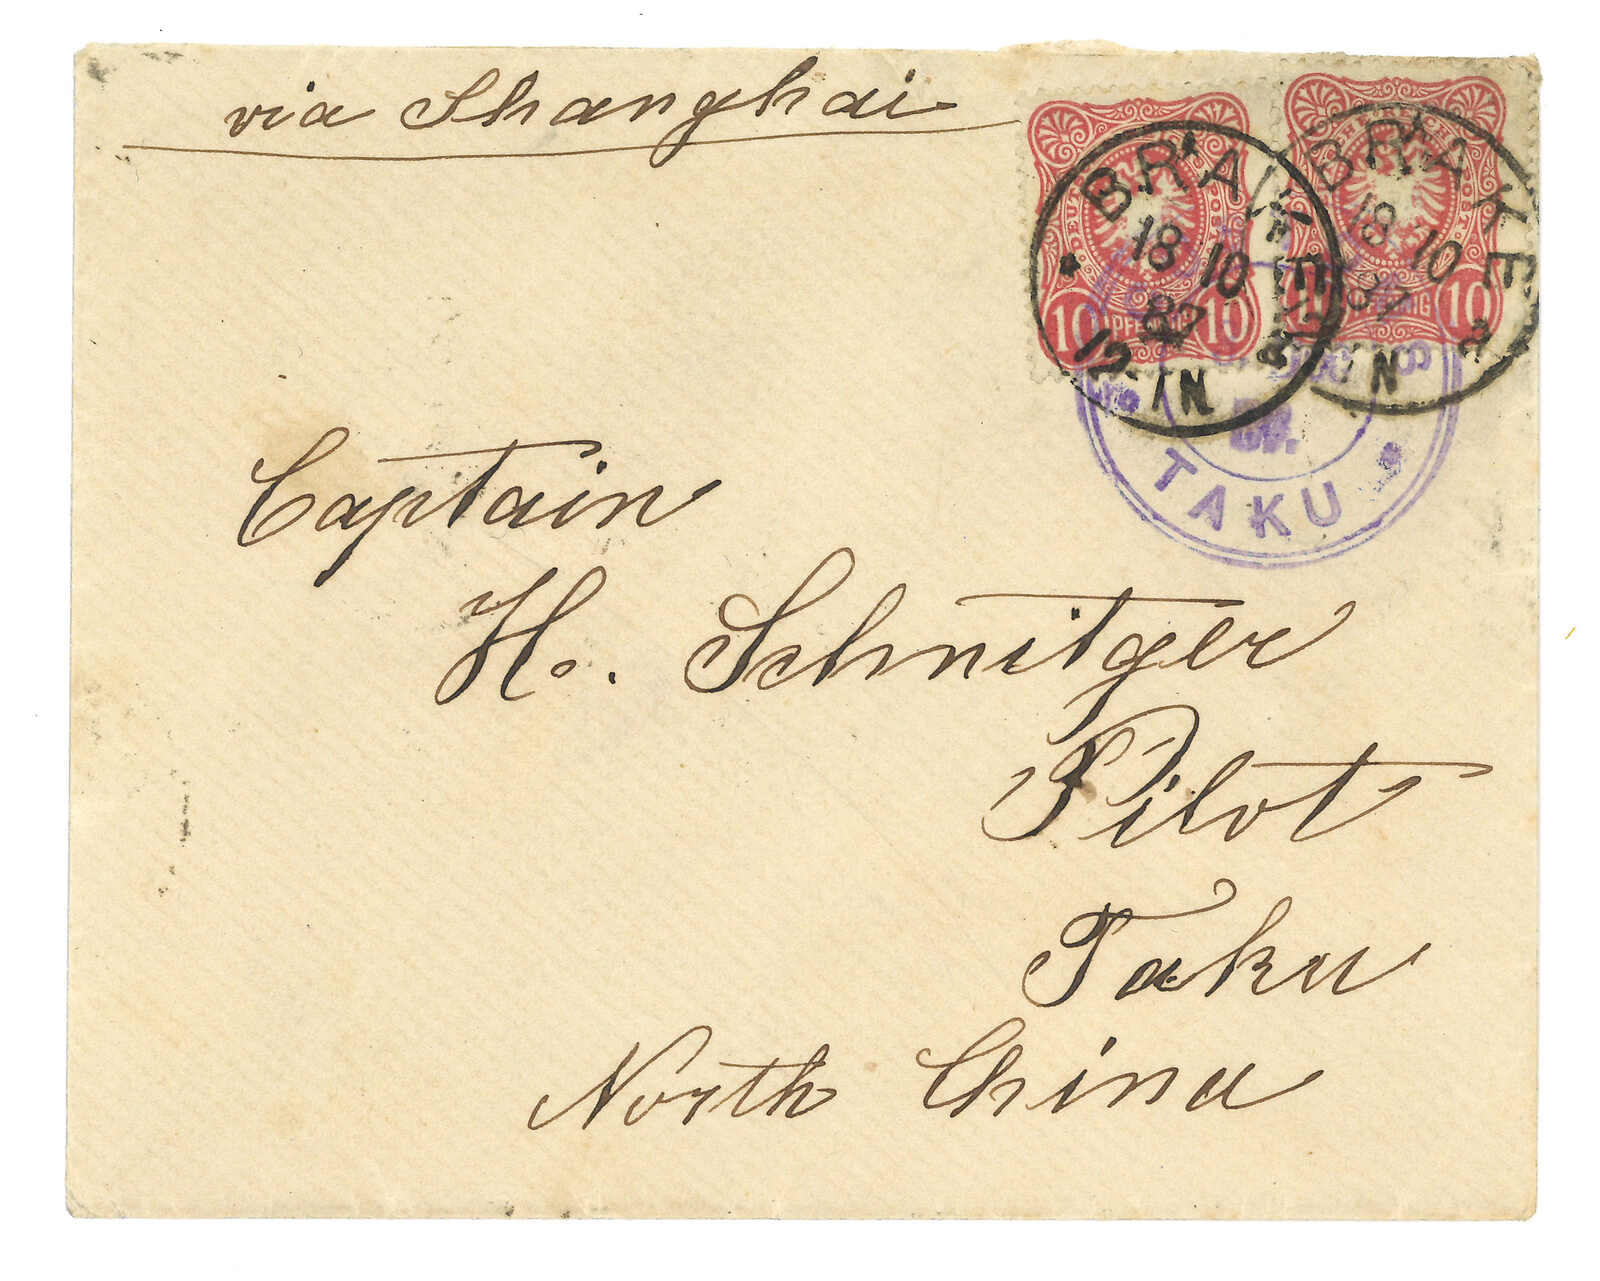 via Shanghai
DEUTSCHE REICHSPOST
10 PFENNIG 10
10 PFENNIG 10
BRAKE
18 10
87
12-1N
BRAKE
18 10
87
1N
a
TAKU
Captain
H. Schnitger
Pilot
Taku
North China